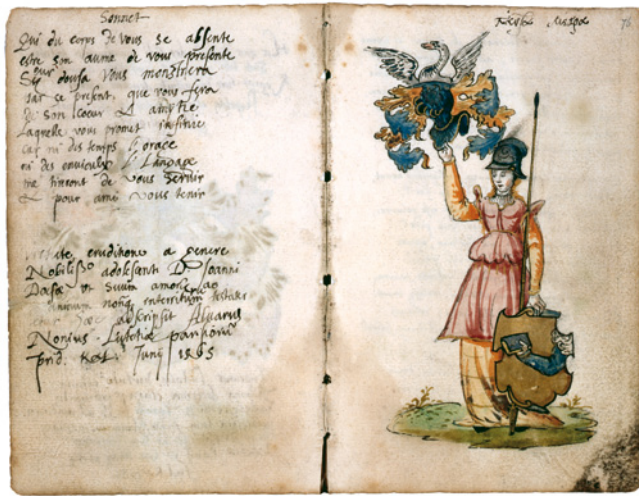 Sonnet
Qui du corps de vous se absente
estre son aume de vous presente
Sieur dousa vous monstrera
par ce present, que vous fera
De son coeur & amytie
Laquelle vous promet infinie
car ni des temps l'orage
ni des envieulx le Langage
me tiendront de vous servir
& pour ami vous tenir
eruditione a genere
Nobiliss° adolescenti D° Joanni
Dousae ut suum amorē ac
animum nonq̄ interiturum testaretur
haec adscripsit Alvarus
Nonius Lutetiae parisiorū
prid. Kal. Junij 1565
76